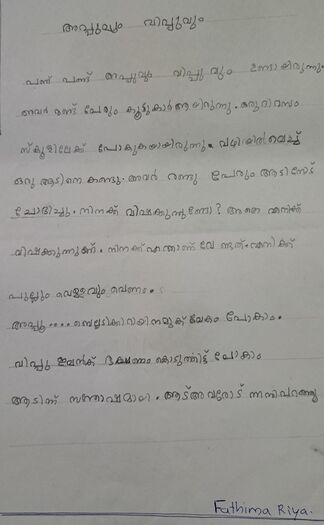 അപ്പുവും വിപ്പുവും
പണ്ട് പണ്ട് അപ്പുവും വിപ്പുവും ഉണ്ടായിരുന്നു.
അവർ രണ്ട് പേരും കൂട്ടുകാർ ആയിരുന്നു. ഒരു ദിവസം
സ്കൂളിലേക്ക് പോകുകയായിരുന്നു. വഴിയിൽ വെച്ച്
ഒരു ആടിനെ കണ്ടു. അവർ രണ്ടു പേരും ആടിനോട്
ചോദിച്ചു. നിനക്ക് വിഷക്കുന്നുണ്ടോ? അതെ എനിക്ക്
വിഷക്കുന്നുണ്ട്. നിനക്ക് എന്താണ് വേണ്ടത്. എനിക്ക്
പുല്ലും വെള്ളവും വെണം.
അപ്പൂ.... ബെല്ലടിക്കാറായി നമുക്ക് വേകം പോകാം.
വിപ്പു ഇവൻക്ക് ഭക്ഷണം കൊടുത്തിട്ട് പോകാം
ആടിന് സന്തോഷമായി. ആട് അവരോട് നന്നി പറഞ്ഞു
Fathima Riya.